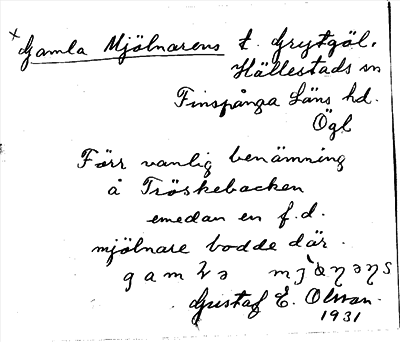 × Gamla Mjölnarens t. Grytgöl,
Hällestads sn
Finspånga Läns hd.
Ögl
Förr vanlig benämning
å Tröskebacken
emedan en f.d.
mjölnare bodde där.
Gustaf E. Olsson.
1931